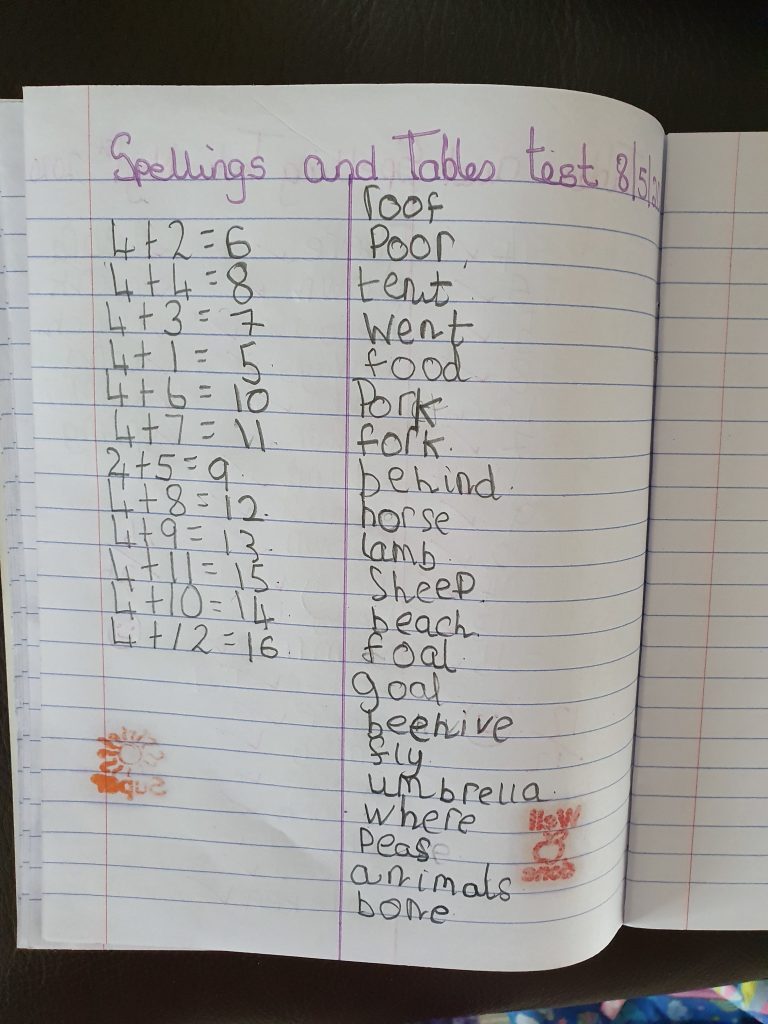 Spellings and Tables test 8/5/2
4+2=6
4+4=8
4+3=7
4+1=5
4+6=10
4+7=11
4+5=9.
4+8=12.
4+9=13.
4+11=15.
4+10=14
4+12=16.
roof
Poor.
tent.
went
food
Pork
fork.
behind.
horse
lamb
Sheep.
beach.
foal.
goal
beehive
fly
umbrella.
where
Peas
animals
bone
Super
Well
Done